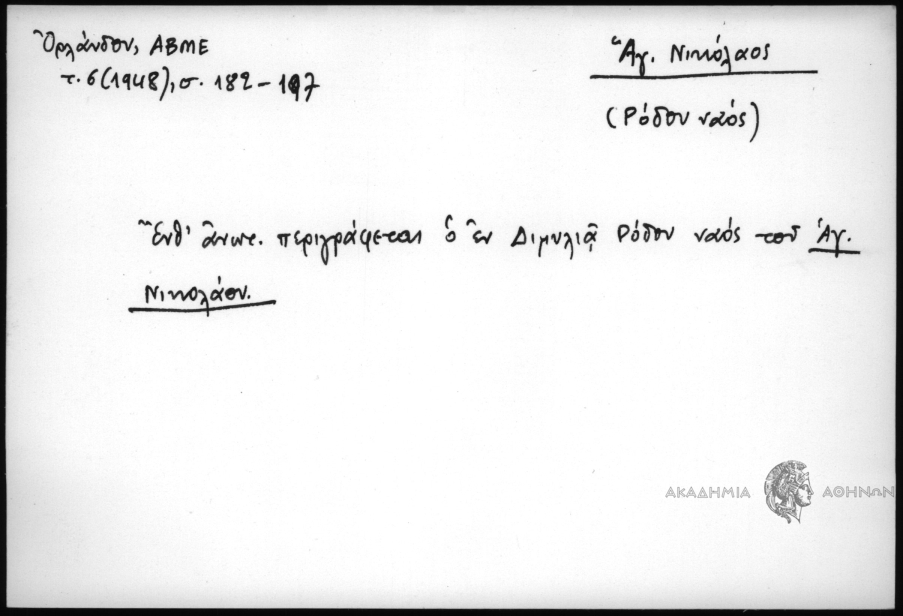 Ὀρλάνδου, ΑΒΜΕ
τ. 6 (1948), σ. 182 – 197
Ἁγ. Νικόλαος
(Ρόδου ναός)
Ἔνθ' ἄνωτ. περιγράφεται ὁ ἐν Διμυλιᾷ Ρόδου ναός τοῦ Ἁγ.
Νικολάου.
ΑΚΑΔΗΜΙΑ ΑΘΗΝΩΝ